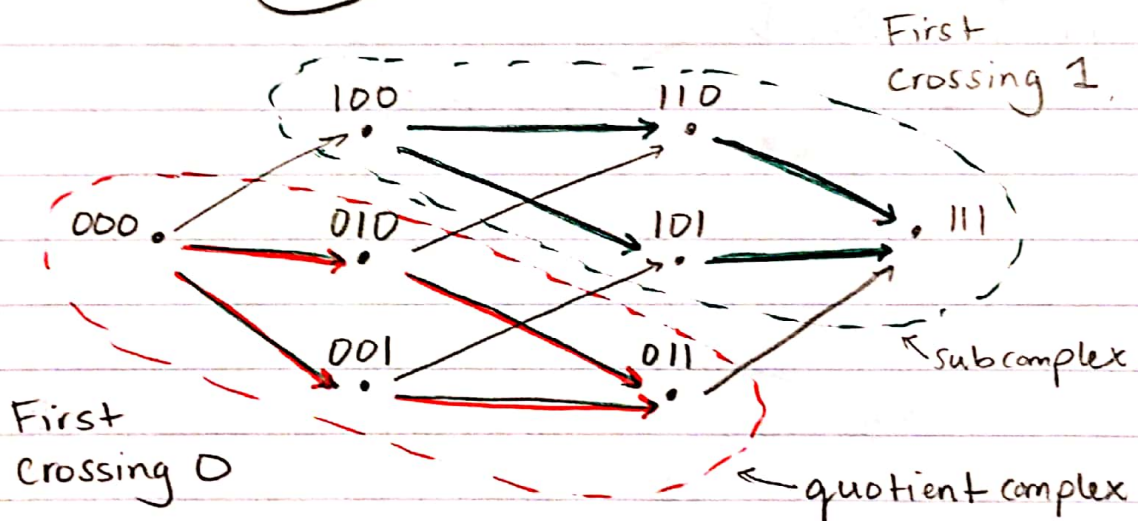 First
crossing 1.
100 110
000 010 101 111
001 011
subcomplex
First
crossing 0
quotient complex